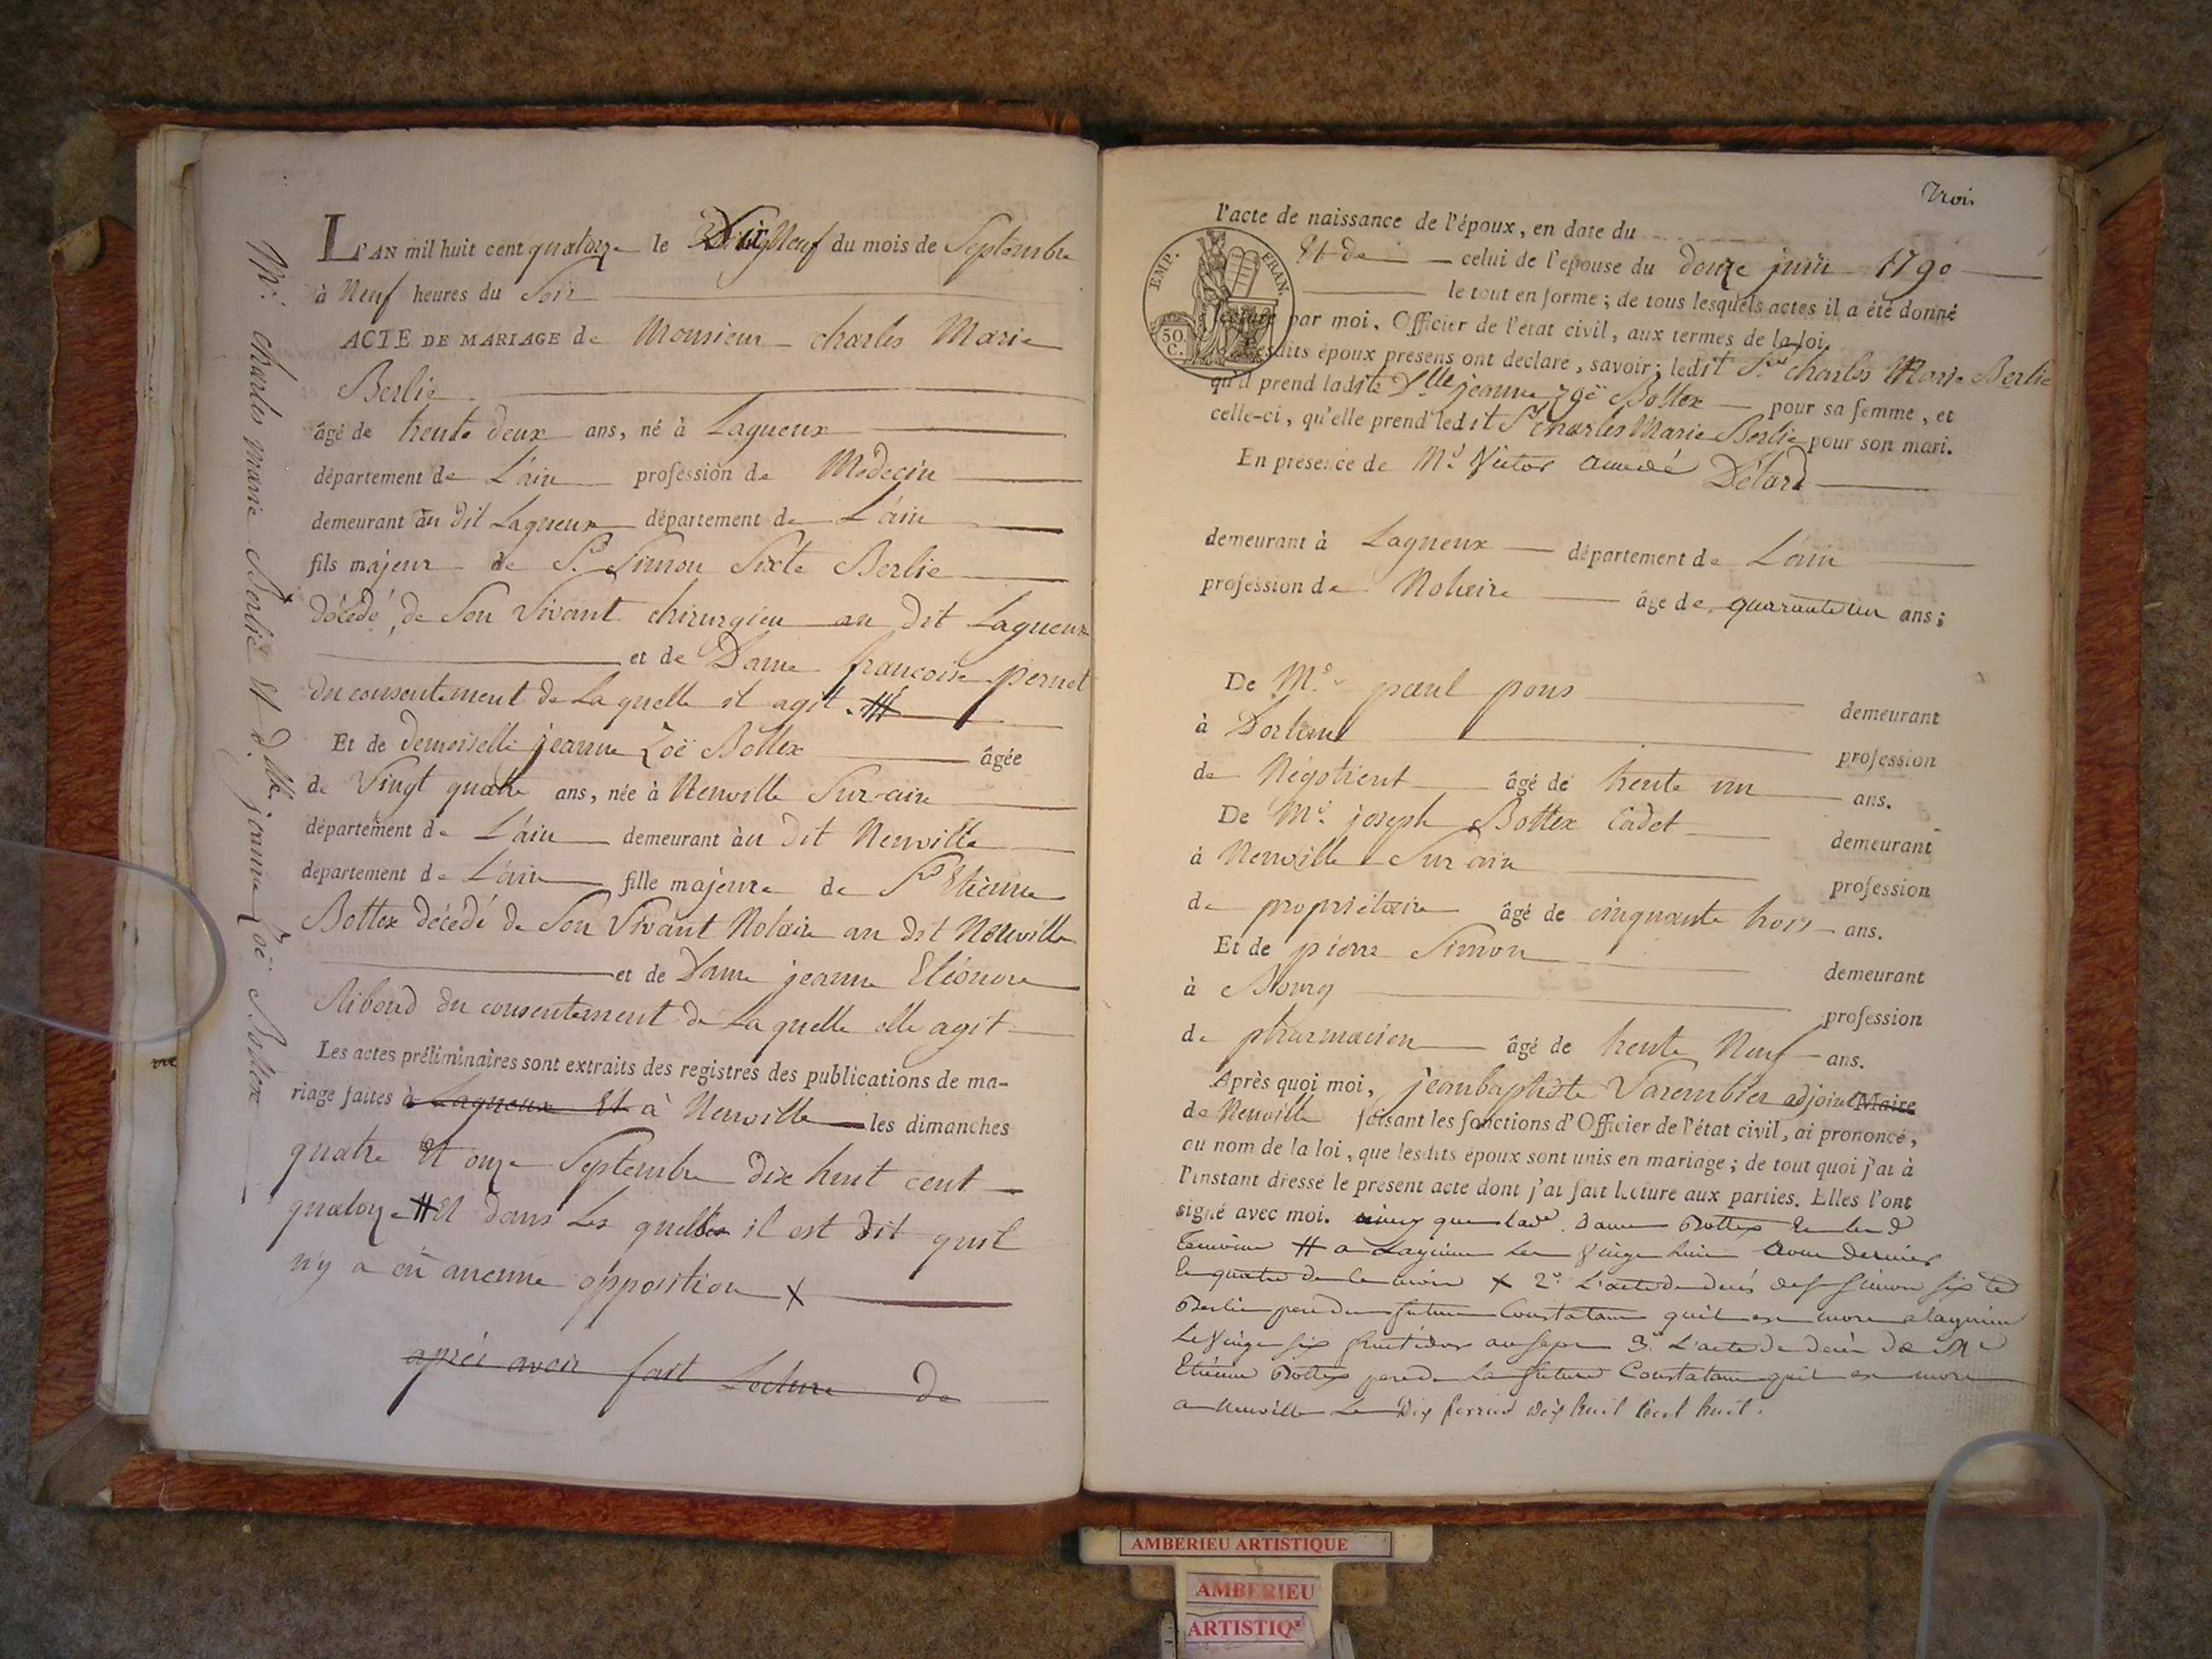 L'AN mil huit cent quatorze le Dix Neuf du mois de Septembre
à Neuf heures du Soir
ACTE DE MARIAGE de Monsieur charles Marie
Berlie
âgé de trente deux ans, né à Lagneux
département de L'ain profession de Medecin
demeurant au dit Lagneux département de L'ain
fils majeur de S.r Simon Sixte Berlie
décédé, de Son Vivant chirurgien au dit Lagneux
et de Dame francoise pernet
du consentement de Laquelle il agit. #
Et de demoiselle jeanne Zoë Bottex âgée
de Vingt quatre ans, née à Neuville Sur-ain
département de L'ain demeurant au dit Neuville
département de L'ain fille majeure de S.r Etienne
Bottex décédé de Son Vivant Notaire au dit Neuville
et de Dame jeanne Eléonore
Riboud du consentement de Laquelle elle agit
Les actes préliminaires sont extraits des registres des publications de ma-
riage faites à Lagneux Et à Neuville les dimanches
quatre Et onze Septembre dix huit cent
quatorze # Et dans Les quelles il est dit quil
n'y a eû aucune opposition X
aprés avoir fait Lecture de
Mr. charles marie Berlie Et d.lle jeanne Zoë Bottex
Trois
l'acte de naissance de l'époux, en date du
Et de celui de l'épouse du douze juin 1790
le tout en forme; de tous lesquels actes il a été donné
par moi, Officier de l'état civil, aux termes de la loi.
EMP. FRAN.
50 C.
Lesdits époux présens ont déclaré, savoir; ledit S.r charles Marie Berlie
qu'il prend ladite D.lle jeanne zoë Bottex pour sa femme, et
celle-ci, qu'elle prend ledit S.r charles Marie Berlie pour son mari.
En présence de Mr. Victor amedé Détard
demeurant à Lagneux département de L'ain
profession de Notaire âgé de quarante un ans;
De Mr. paul pons demeurant
à Dortan profession
de Négotient âgé de trente un ans.
De Mr. joseph Bottex Cadet demeurant
à Neuville Sur ain profession
de propriétaire âgé de cinquante trois ans.
Et de pierre Simon demeurant
à Bourg profession
de pharmacien âgé de trente Neuf ans.
Après quoi moi, jean baptiste Varembier adjoint Maire
de Neuville faisant les fonctions d'Officier de l'état civil, ai prononcé,
au nom de la loi, que lesdits époux sont unis en mariage; de tout quoi j'ai à
l'instant dressé le présent acte dont j'ai fait lecture aux parties. Elles l'ont
signé avec moi. ainsy que lad.e dame Bottex
temoins # a Lagnieu Les Vingt huit aout dernier
le quatre de ce mois X 2.o L'acte de decés de Simon sixte
Berlie pere du futur Constatant quil est mort a lagnieu
Le Vingt six fructidor an sept 3.o L'acte de decés de Mr
Etienne Bottex pere de La future Constatant quil est mort
a Neuville Le Dix fevrier dix huit Cent huit.
AMBERIEU ARTISTIQUE
AMBERIEU
ARTISTIQU